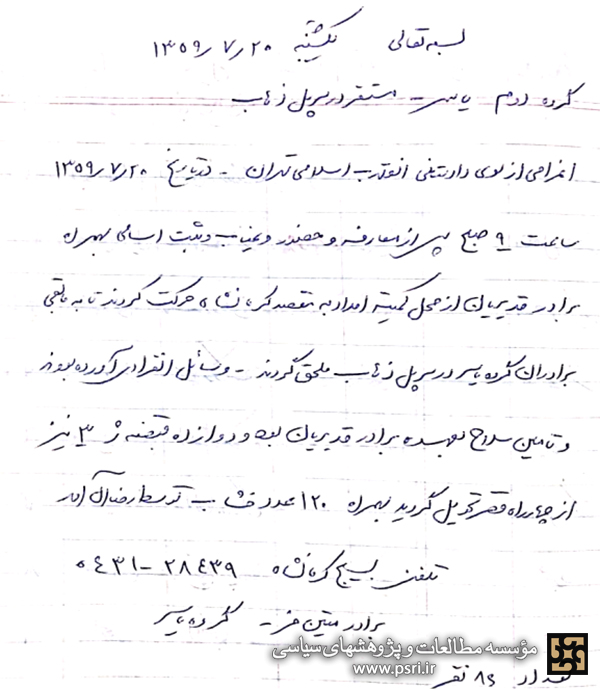 بسمه تعالی یکشنبه ۱۳۵۹/۷/۲۰
گروه دوم یاسر - مستقر در سرپل ذهاب
اعزامی از سوی دادستانی انقلاب اسلامی تهران - در تاریخ ۱۳۵۹/۷/۲۰
ساعت ۹ صبح پس از معارفه و حضور و غیاب و ثبت اسامی بهمراه
برادر قدیریان از محل کمیته امداد به مقصد کرمانشاه حرکت کردند تا به مابقی
برادران گروه یاسر در سرپل ذهاب ملحق گردند - وسائل انفرادی آورده بودند
و تامین سلاح بعهده برادر قدیریان بود و دوازده قبضه ژ ۳ نیز
از چهارراه قصر تحویل گردید بهمراه ۱۲۰ عدد خشاب توسط رضا آل آمد
تلفن بسیج کرمانشاه ۰۴۳۱-۲۸۴۳۹
برادر متین فر - گروه یاسر
تعداد ۸۶ نفر
مؤسسه مطالعات و پژوهشهای سیاسی
www.psri.ir